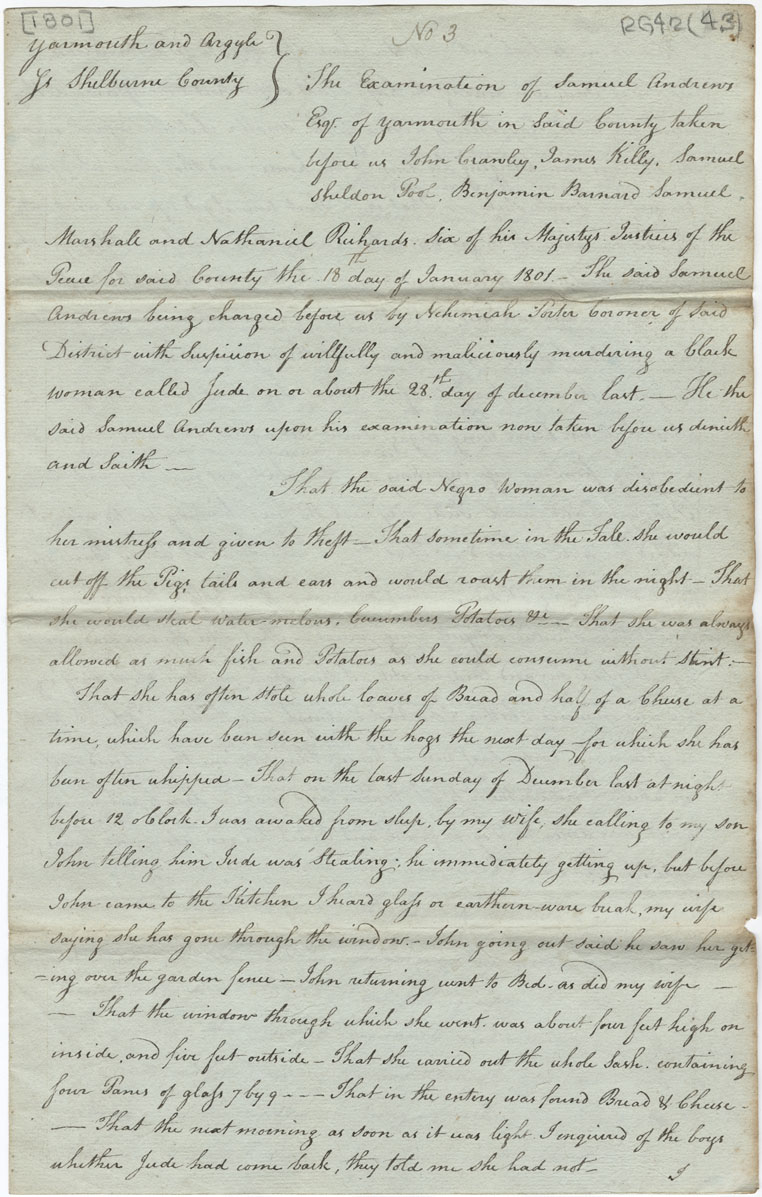 [1801]
No 3
RG42 (43)
Yarmouth and Argyle }
Ss Shelburne County }
The Examination of Samuel Andrews
Esqr. of Yarmouth in Said County taken
before us John Crawley, James Killy, Samuel
Sheldon Pool, Benjamin Barnard Samuel
Marshall and Nathaniel Richards. Six of his Majestys Justices of the
Peace for said County the 18th day of January 1801 – The said Samuel
Andrews being charged before us by Nehimiah Porter Coroner of Said
District with Suspicion of willfully and maliciously murdering a black
woman called Jude on or about the 28th day of december last. — He the
said Samuel Andrews upon his examination now taken before us denieth
and Saith —
That the said Negro Woman was disobedient to
her mistress and given to theft – That sometime in the Fale she would
cut off the Pigs tails and ears and would roast them in the night – That
she would steal water-melons, Cucumbers Potatoes &c — That she was always
allowed as much fish and Potatoes as she could consume without Stint. –
That she has often stole whole loaves of Bread and half of a Cheese at a
time, which have been seen with the hogs the next day – for which she has
been often whipped – That on the last Sunday of December last at night
before 12 oClock. I was awaked from sleep, by my wife, she calling to my son
John telling him Jude was Stealing; he immediately getting up, but before
John came to the Kitchen I heard glass or earthern-ware break, my wife
saying she has gone through the window. – John going out said he saw her get-
-ing over the garden fence – John returning went to Bed. as did my wife —
— That the window through which she went. was about four feet high on
inside, and five feet outside – That she carried out the whole Sash. containing
four Panes of glass 7 by 9 - - – That in the entery was found Bread & Cheese -
— That the next morning as soon as it was light I enquired of the boys
whether Jude had come back, they told me she had not –
I